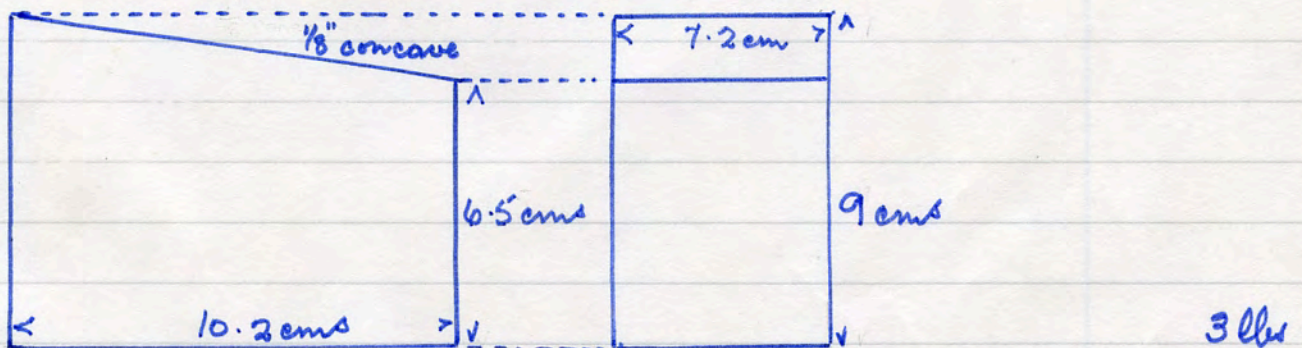 1/8" concave
7.2 cm
6.5 cms
9 cms
10.2 cms
3 lbs